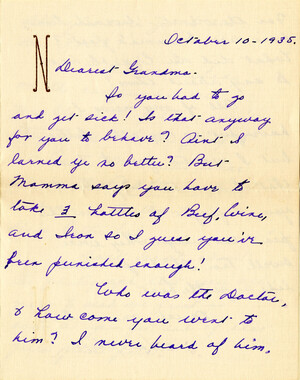 October 10-1935.
N
Dearest Grandma.
So you had to go
and get sick! Is that anyway
for you to behave? Aint I
larned ye no better? But
Mamma says you have to
take 3 bottles of Beef, Wine,
and Iron so I guess you've
been punished enough!
Who was the Doctor,
& how come you went to
him? I never heard of him.